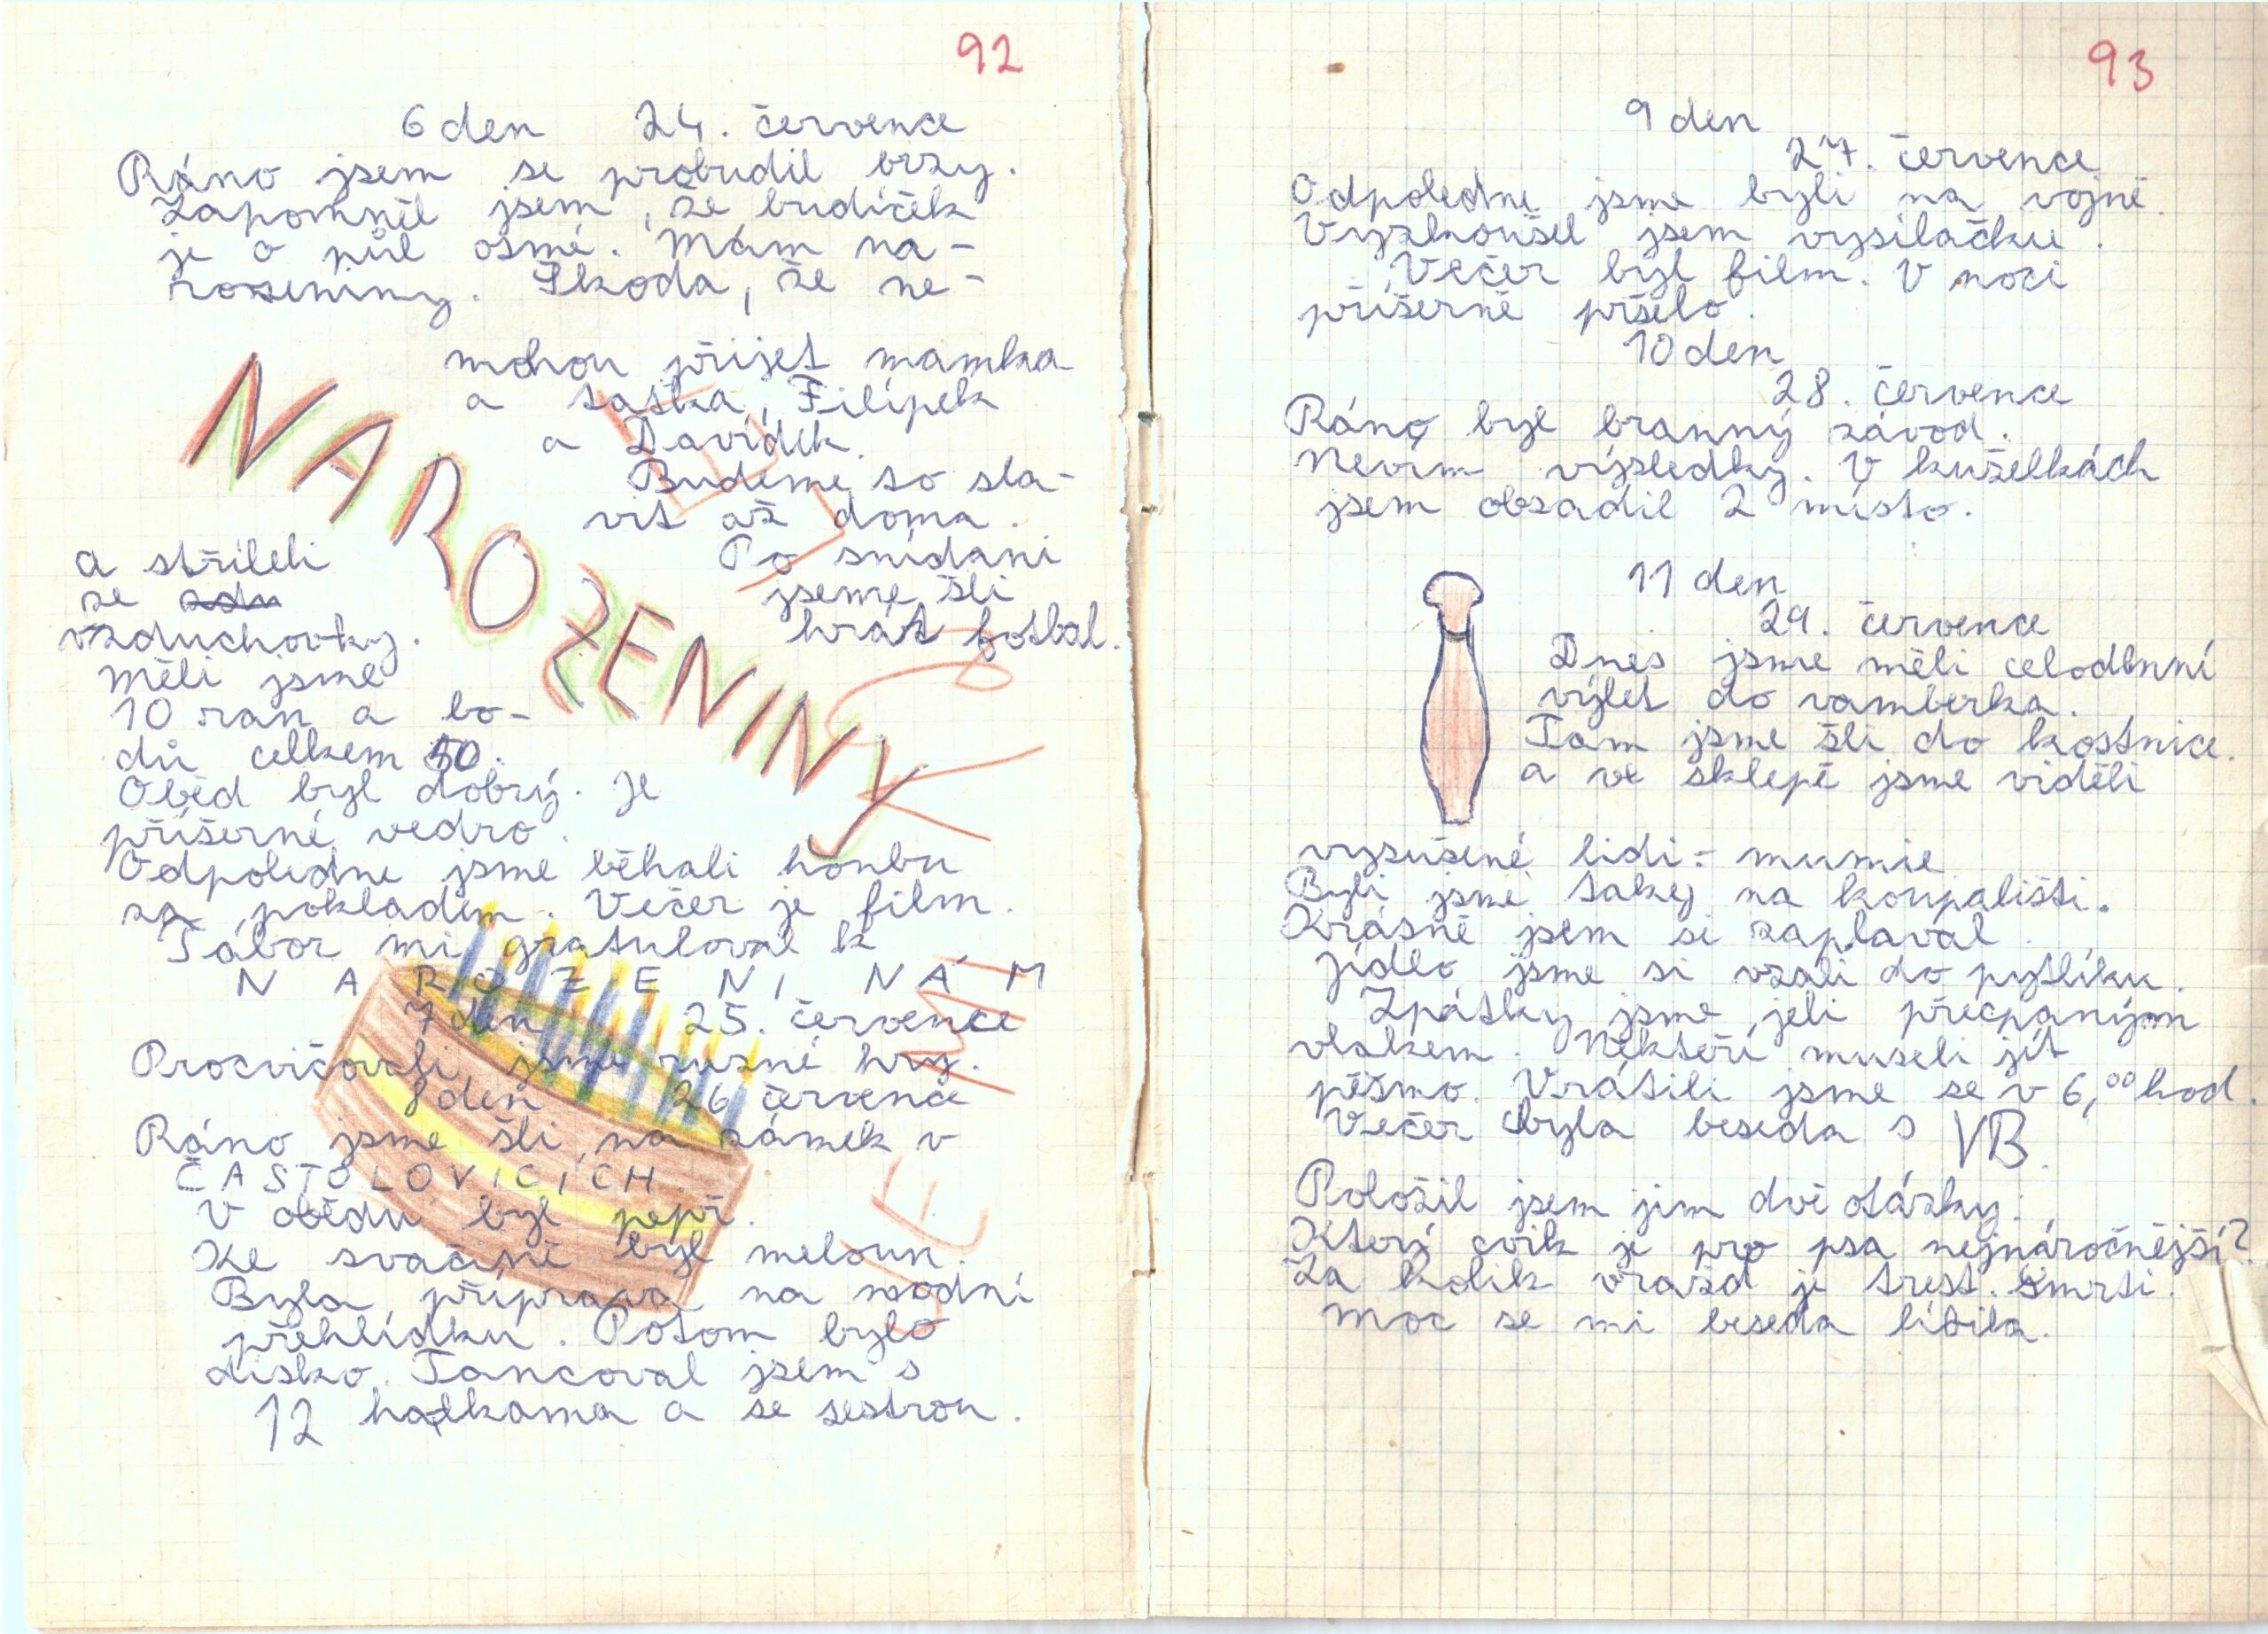 92
6 den 24. července
Ráno jsem se probudil brzy.
Zapomněl jsem, že budíček
je o půl osmé. Mám na-
rozeniny. Škoda, že ne-
mohou přijet mamka
a taťka, Filípek
a Davídek.
Budeme to sla-
vit až doma.
Po snídani
jseme šli
hrát fotbal.
NAROZENINY
a stříleli
ze
vzduchovky.
Měli jsme
10 ran a bo-
dů celkem 50.
Oběd byl dobrý. Je
příšerné vedro.
Odpoledne jsme běhali honbu
za pokladem. Večer je film.
Tábor mi gratuloval k
N A R O Z E N I N Á M
7 den 25. července
Procvičovali jsme rusné hry.
8 den 26 července
Ráno jsme šli na zámek v
ČASTOLOVICÍCH.
V obědu byl pepř.
Ke svačině byl meloun.
Byla příprava na modní
přehlídku. Potom bylo
disko. Tancoval jsem s
12 holkama a se sestrou.
93
9 den
27. července
Odpoledne jsme byli na vojně.
Vyzkoušel jsem vysilačku.
Večer byl film. V noci
příšerně pršelo.
10 den
28. července
Ráno byl branný závod.
Nevím výsledky. V kuželkách
jsem obsadil 2 místo.
11 den
29. července
Dnes jsme měli celodenní
výlet do vamberka.
Tam jsme šli do kostnice.
a ve sklepě jsme viděli
vysušené lidi - mumie
Byli jsme taky na koupališti.
Krásně jsem si zaplaval.
Jídlo jsme si vzali do pytlíku.
Zpátky jsme jeli přecpaným
vlakem. Někteří museli jít
pěšmo. Vrátili jsme se v 6,00 hod.
Večer byla beseda s VB.
Položil jsem jim dvě otázky:
Který cvik je pro psa nejnáročnější?
Za kolik vražd je trest. smrti.
Moc se mi beseda líbila.